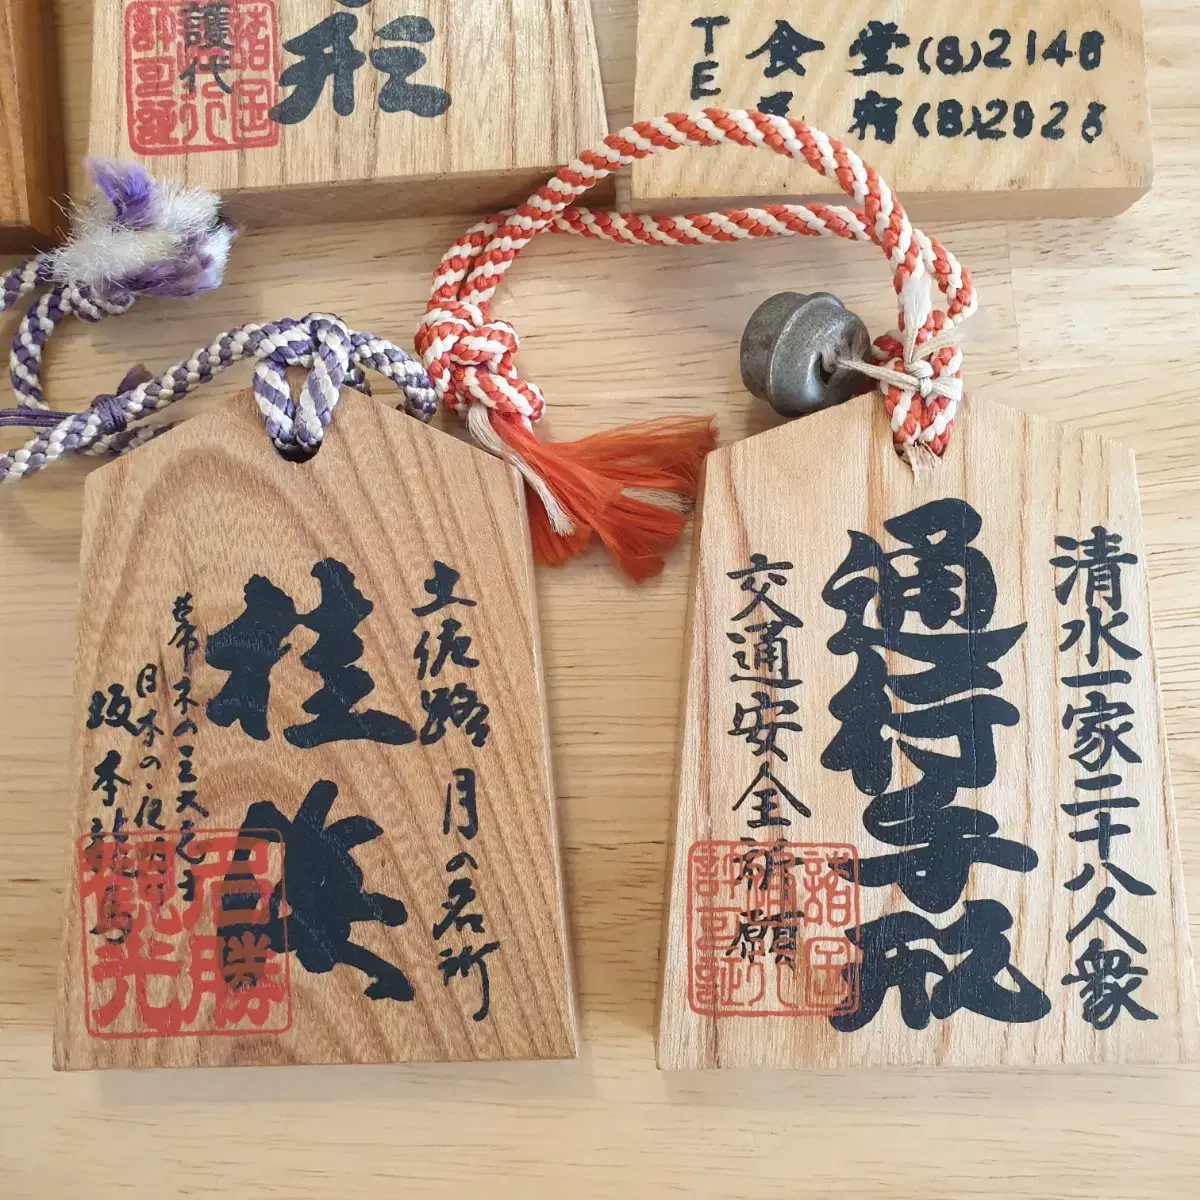 形
護代
諸国
TE
食堂(8)2148
宿(8)2928
土佐路 月の名所
桂浜
幕末の三大志士
日本の夜明け
坂本龍馬
名勝
観光
清水一家二十八人衆
通行手形
交通安全祈願
諸国